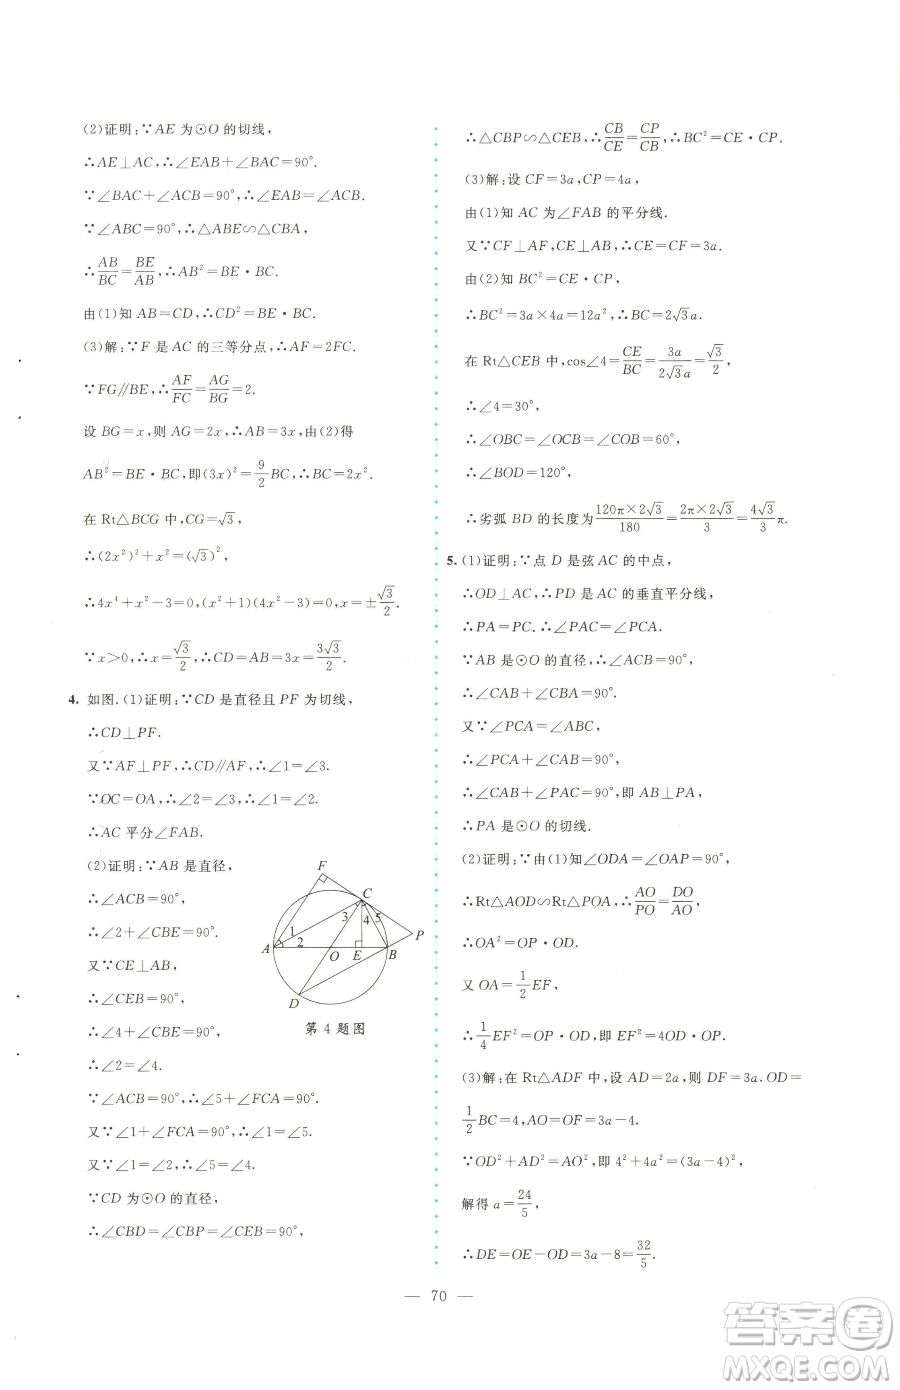 (2)证明:∵AE 为⊙O 的切线,
∴AE⊥AC,∴∠EAB+∠BAC=90°.
∵∠BAC+∠ACB=90°,∴∠EAB=∠ACB.
∵∠ABC=90°,∴△ABE∽△CBA,
∴AB/BC=BE/AB,∴AB²=BE·BC.
由(1)知 AB=CD,∴CD²=BE·BC.
(3)解:∵F 是 AC 的三等分点,∴AF=2FC.
∵FG∥BE,∴AF/FC=AG/BG=2.
设 BG=x,则 AG=2x,∴AB=3x,由(2)得
AB²=BE·BC,即(3x)²=9/2BC,∴BC=2x².
在 Rt△BCG 中,CG=√3,
∴(2x²)²+x²=(√3)²,
∴4x⁴+x²-3=0,(x²+1)(4x²-3)=0,x=±√3/2.
∵x>0,∴x=√3/2,∴CD=AB=3x=3√3/2.
4. 如图.(1)证明:∵CD 是直径且 PF 为切线,
∴CD⊥PF.
又∵AF⊥PF,∴CD∥AF,∴∠1=∠3.
∵OC=OA,∴∠2=∠3,∴∠1=∠2.
∴AC 平分∠FAB.
(2)证明:∵AB 是直径,
∴∠ACB=90°,
∴∠2+∠CBE=90°.
又∵CE⊥AB,
∴∠CEB=90°,
∴∠4+∠CBE=90°,
∴∠2=∠4.
∵∠ACB=90°,∴∠5+∠FCA=90°.
又∵∠1+∠FCA=90°,∴∠1=∠5.
又∵∠1=∠2,∴∠5=∠4.
∵CD 为⊙O 的直径,
∴∠CBD=∠CBP=∠CEB=90°,
F
C
3
4
5
P
1
2
A
O
E
B
D
第 4 题图
∴△CBP∽△CEB,∴CB/CE=CP/CB,∴BC²=CE·CP.
(3)解:设 CF=3a,CP=4a,
由(1)知 AC 为∠FAB 的平分线.
又∵CF⊥AF,CE⊥AB,∴CE=CF=3a.
由(2)知 BC²=CE·CP,
∴BC²=3a×4a=12a²,∴BC=2√3a.
在 Rt△CEB 中,cos∠4=CE/BC=3a/2√3a=√3/2,
∴∠4=30°,
∴∠OBC=∠OCB=∠COB=60°,
∴∠BOD=120°,
∴劣弧 BD 的长度为120π×2√3/180=2π×2√3/3=4√3/3π.
5. (1)证明:∵点 D 是弦 AC 的中点,
∴OD⊥AC,∴PD 是 AC 的垂直平分线,
∴PA=PC.∴∠PAC=∠PCA.
∵AB 是⊙O 的直径,∴∠ACB=90°,
∴∠CAB+∠CBA=90°.
又∵∠PCA=∠ABC,
∴∠PCA+∠CAB=90°,
∴∠CAB+∠PAC=90°,即 AB⊥PA,
∴PA 是⊙O 的切线.
(2)证明:∵由(1)知∠ODA=∠OAP=90°,
∴Rt△AOD∽Rt△POA,∴AO/PO=DO/AO,
∴OA²=OP·OD.
又 OA=1/2EF,
∴1/4EF²=OP·OD,即 EF²=4OD·OP.
(3)解:在 Rt△ADF 中,设 AD=2a,则 DF=3a.OD=
1/2BC=4,AO=OF=3a-4.
∵OD²+AD²=AO²,即 4²+4a²=(3a-4)²,
解得 a=24/5,
∴DE=OE-OD=3a-8=32/5.
— 70 —
答案圈
MXQE.COM